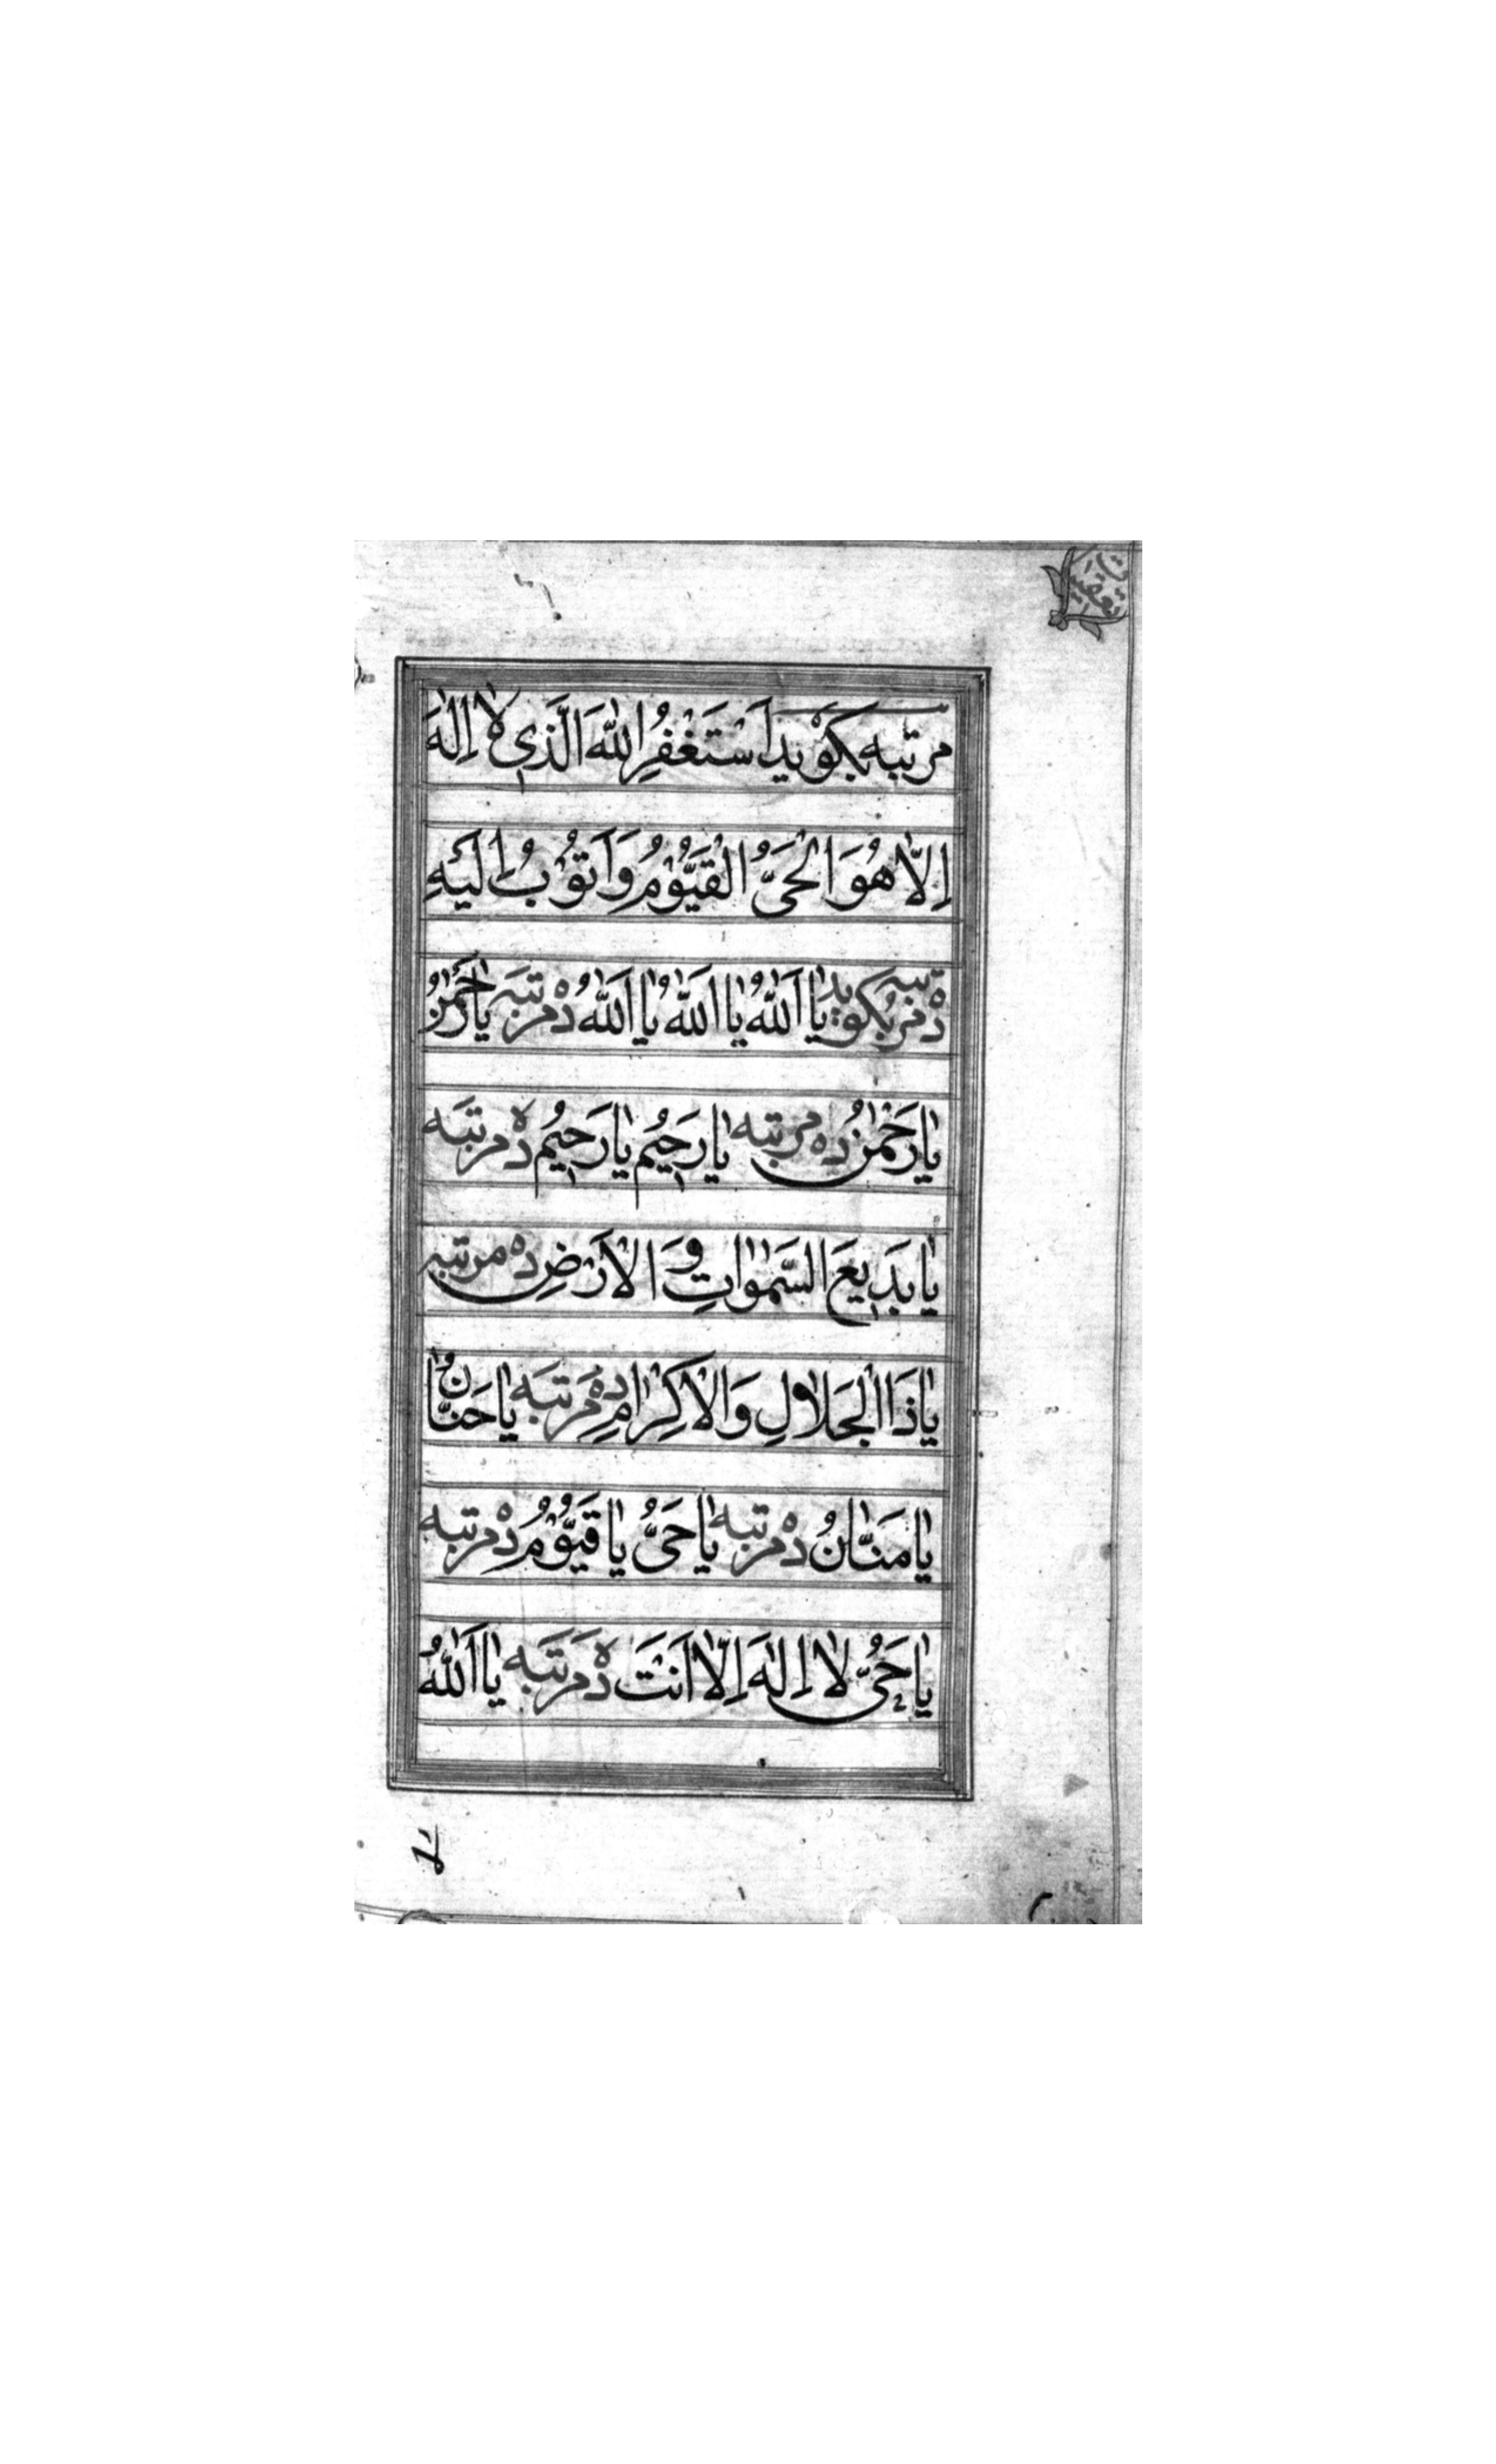 مرتبه بكويد اَسْتَغْفِرُ اللّٰهَ الَّذِي لَا اِلٰهَ
اِلَّا هُوَ الْحَيُّ الْقَيُّوْمُ وَاَتُوْبُ اِلَيْهِ
دْه مرتبه بكويد يٰا اَللّٰهُ يٰا اَللّٰهُ يٰا اَللّٰهُ دْه مرتبَه يٰا رَحْمٰنُ
يٰا رَحْمٰنُ ده مرتبه يٰا رَحِيُم يٰا رَحِيُم دْه مرتبَه
يٰا بَدِيعَ السَّمٰوٰاتِ وَ الْاَرْضِ ده مرتبه
يٰا ذَا الْجَلٰالِ وَالْاِكْرٰامِ دْه مَرتبَه يٰا حَنّٰانُ
يٰا مَنّٰانُ دْه مرتبه يٰا حَيُّ يٰا قَيُّوْمُ دْه مرتبه
يٰا حَيُّ لٰا اِلٰهَ اِلّٰا اَنْتَ دْه مَرتَبَه يٰا اَللّٰهُ
لا